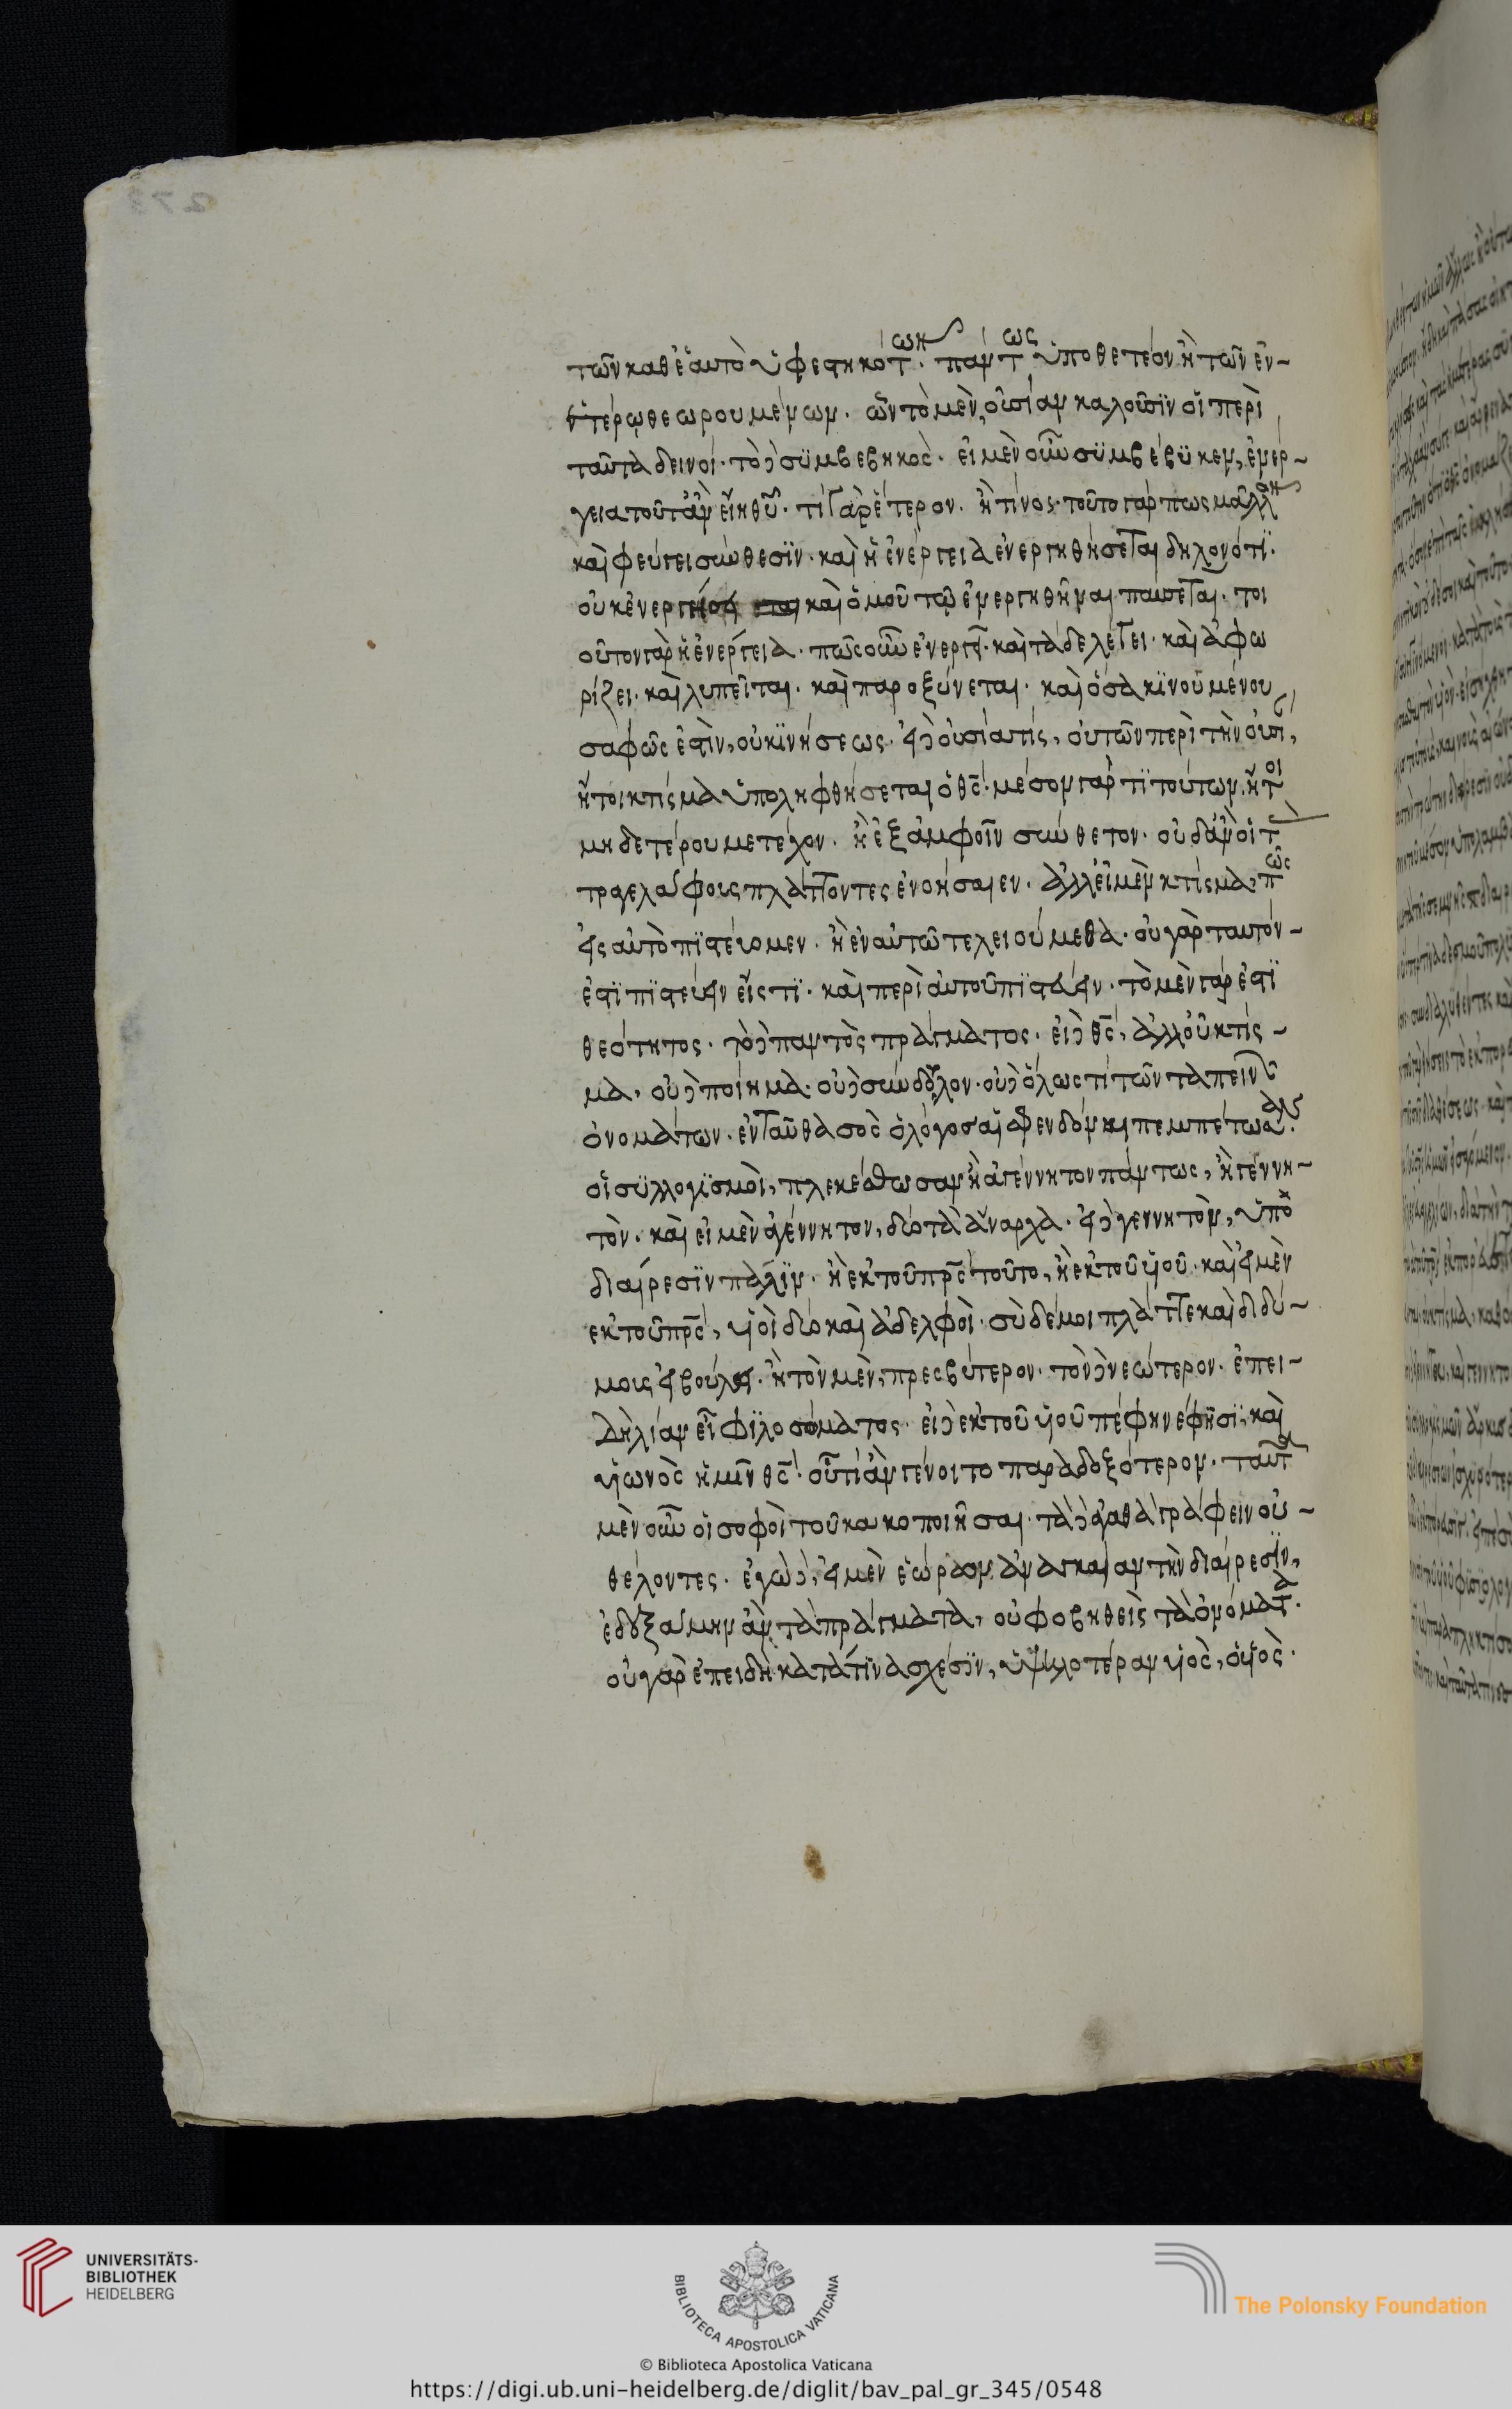 τῶν καθ' ἑαυτὸ ὑφεστηκότων. πάντως ὑποθετέον. ἢ τῶν ἐν
ἑτέρῳ θεωρουμένων. ὧν τὸ μὲν, οὐσίαν καλοῦσϊν οἱ περὶ
ταῦτα δεινοί. τὸ δὲ σϋμβεβηκὸς. εἰ μὲν οὖν σϋμβέβϋκεν, ἐνέρ-
γεια τοῦτ' ἂν εἴη θῦ. τί γὰρ ἕτερον. ἢ τίνος. τοῦτο γάρ πως μᾶλλον
καὶ φεύγει σύνθεσϊν. καὶ ἡ ἐνέργεια ἐνεργηθήσεται δηλονότϊ.
οὐκ ἐνεργήσει καὶ ὁμοῦ τῷ ἐνεργηθῆναι παύσεται. τοι
οῦτον γὰρ ἡ ἐνέργεια. πῶς οὖν ἐνεργεῖ. καὶ τὰ δε λέγει. καὶ ἀφω
ρίζει. καὶ λυπεῖται. καὶ παροξύνεται. καὶ ὅσα κϊνουμένου
σαφῶς ἐστὶν, οὐ κϊνήσεως. εἰ δὲ οὐσία τίς, οὐ τῶν περὶ τὴν οὐσίαν,
ἤτοι κτίσμα ὑποληφθήσεται ὁ θς. μέσον γάρ τϊ τούτων. ἤτοι
μηδετέρου μετέχον. ἢ ἐξ ἀμφοῖν σύνθετον. οὐδ' ἂν οἱ τοὺς
τραγελάφους πλάττοντες ἐνοήσαιεν. ἀλλ' εἰ μὲν κτίσμα, πῶς
εἰς αὐτὸ πϊστεύομεν. ἢ ἐν αὐτῷ τελειούμεθα. οὐ γὰρ ταυτόν-
ἐστϊ πϊστεύειν εἴς τϊ. καὶ περὶ αὐτοῦ πϊστεύειν. τὸ μὲν γάρ ἐστϊ
θεότητος. τὸ δὲ παντὸς πράγματος. εἰ δὲ θς, ἀλλ' οὐ κτίσ-
μα. οὐ δὲ ποίημα. οὐ δὲ σύνδουλον. οὐ δὲ ὅλως τὶ τῶν ταπεινῶν
ὀνομάτων. ἐνταῦθα σὸς ὁ λόγος αἱ σφενδόναι πεμπέτωσαν.
οἱ σϋλλογϊσμοὶ, πλεκέσθωσαν ἢ ἀγέννητον πάντως, ἢ γέννη-
τὸν. καὶ εἰ μὲν ἀγέννητον, δύο τὰ ἄναρχα. εἰ δὲ γεννητὸν, ὑπὸ
διαίρεσϊν πάλϊν. ἢ ἐκ τοῦ πρς τοῦτο, ἢ ἐκ τοῦ ὑιοῦ. καὶ εἰ μὲν
ἐκ τοῦ πρς, ὑιοὶ δύο καὶ ἀδελφοὶ. σὺ δέ μοι πλάττε καὶ διδύ-
μους εἰ βούλει. ἢ τὸν μὲν, πρεσβύτερον. τὸν δὲ νεώτερον. ἐπει-
δὴ λίαν εἶ φϊλοσόματος. εἰ δὲ ἐκ τοῦ ὑιοῦ πέφηνε φησϊ, καὶ
ὑιωνὸς ἡμῖν θς. οὗ τί ἂν γένοιτο παραδοξότερον. ταῦτα
μὲν οὖν οἱ σοφοὶ τοῦ κακοποιῆσαι. τὰ δὲ ἀγαθὰ γράφειν οὐ-
θέλοντες. ἐγὼ δὲ, εἰ μὲν ἑώρων ἀναγκαίαν τὴν διαίρεσϊν,
ἐδεξάμην ἂν τὰ πράγματα, οὐ φοβηθεὶς τὰ ὀνόματα.
οὐ γὰρ ἐπειδὴ κατά τϊνα σχέσϊν, ὑψϊλοτέραν ὑιὸς, ὁ ὑιὸς.
UNIVERSITÄTS-
BIBLIOTHEK
HEIDELBERG
BIBLIOTECA APOSTOLICA VATICANA
The Polonsky Foundation
© Biblioteca Apostolica Vaticana
https://digi.ub.uni-heidelberg.de/diglit/bav_pal_gr_345/0548